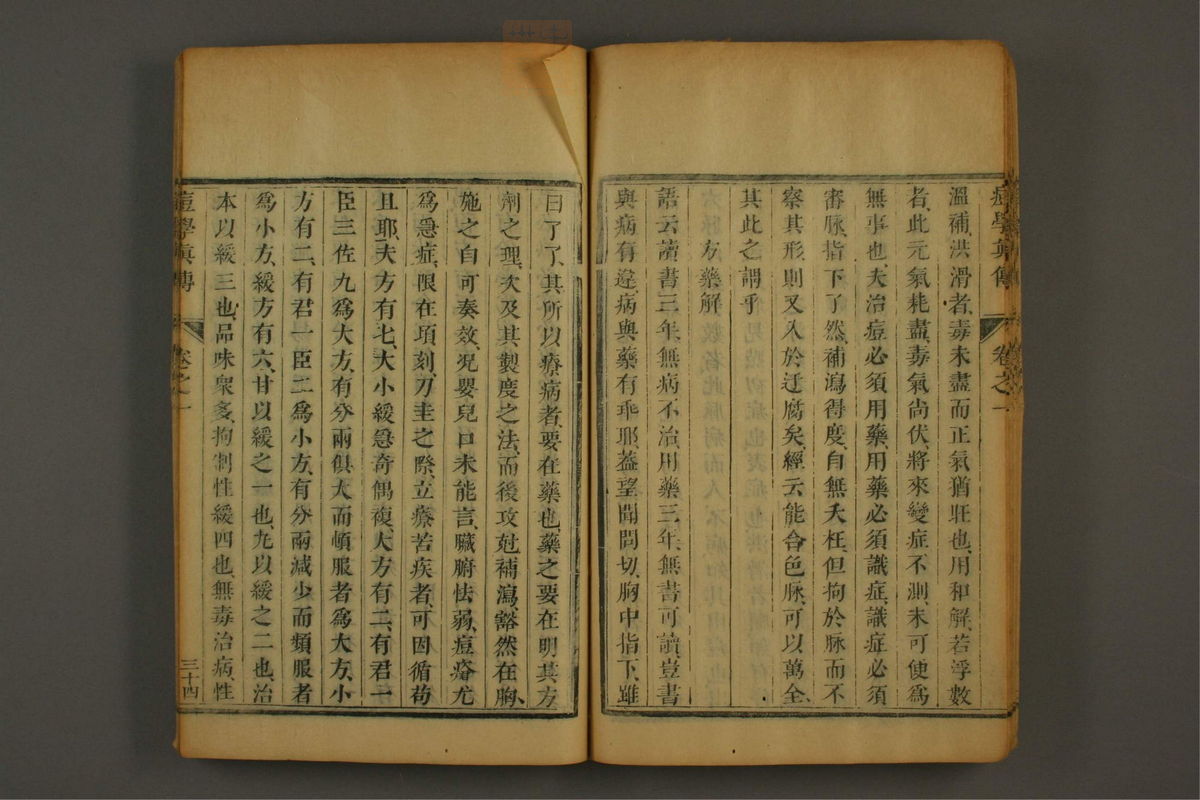 痘學眞傳　卷之一
溫補、洪滑者、毒未盡而正氣猶旺也、用和解、若浮數
者、此元氣耗盡、毒氣尚伏、將來變症不測、未可便爲
無事也、夫治痘必須用藥、用藥必須識症、識症必須
審脉、指下了然、補瀉得度、自無夭枉、但拘於脉而不
察其形、則又入於迂腐矣、經云能合色脉、可以萬全、
其此之謂乎
方藥解
語云讀書三年、無病不治、用藥三年、無書可讀、豈書
與病有違、病與藥有乖耶、葢望聞問切、胸中指下、雖
曰了了、其所以療病者、要在藥也、藥之要在明其方
劑之理、次及其製度之法、而後攻尅補瀉、豁然在胸、
施之自可奏效、况嬰兒口未能言、臟腑怯弱、痘瘄尤
爲急症、限在項刻、刀圭之際、立療苦疾者、可因循苟
且耶、夫方有七、大小緩急奇偶複、大方有二、有君一
臣三佐九爲大方、有分兩俱大而頓服者爲大方、小
方有二、有君一臣二爲小方、有分兩减少而類服者
爲小方、緩方有六、甘以緩之一也、九以緩之二也、治
本以緩三也、品味衆多、拘制性緩四也、無毒治病、性
痘學眞傳　卷之一　三十四